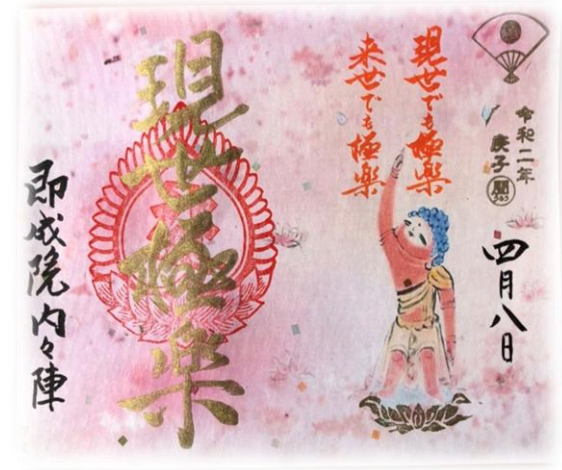 令和二年
庚子
四月八日
現世でも極楽
来世でも極楽
現世極楽
即成院内々陣